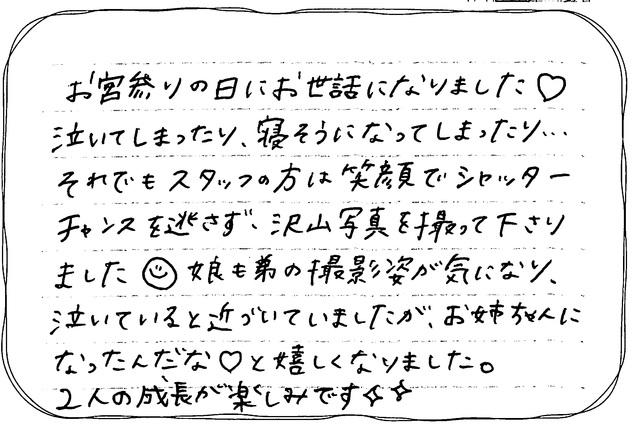 お宮参りの日にお世話になりました♡
泣いてしまったり、寝そうになってしまったり…
それでもスタッフの方は笑顔でシャッター
チャンスを逃さず、沢山写真を撮って下さり
ました☺娘も弟の撮影姿が気になり、
泣いていると近づいていましたが、お姉ちゃんに
なったんだな♡と嬉しくなりました。
2人の成長が楽しみです✧✧